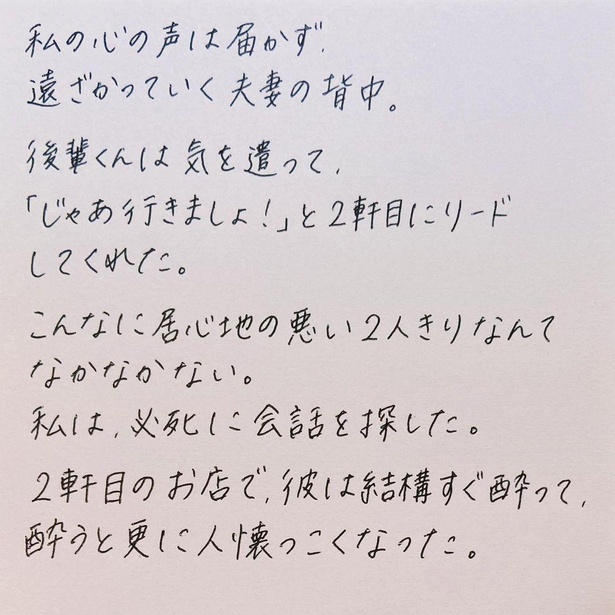 私の心の声は届かず、
遠ざかっていく夫妻の背中。
後輩くんは気を遣って、
「じゃあ行きましょ！」と2軒目にリード
してくれた。
こんなに居心地の悪い2人きりなんて
なかなかない。
私は、必死に会話を探した。
2軒目のお店で、彼は結構すぐ酔って、
酔うと更に人懐っこくなった。